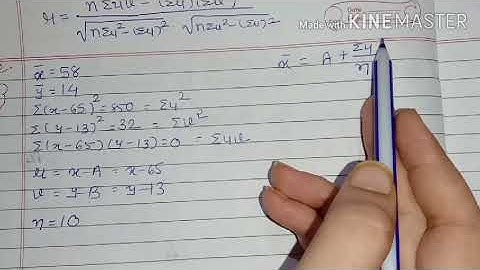 r = nΣuv - (Σu)(Σv) / √nΣu² - (Σu)² · √nΣv² - (Σv)²
Made with KINEMASTER
x̄ = 58
ȳ = 14
Σ(x-65)² = 850 = Σu²
Σ(y-13)² = 32 = Σv²
Σ(x-65)(y-13) = 0 = Σuv
u = x-A = x-65
v = y-B = y-13
n = 10
x̄ = A + Σu / n